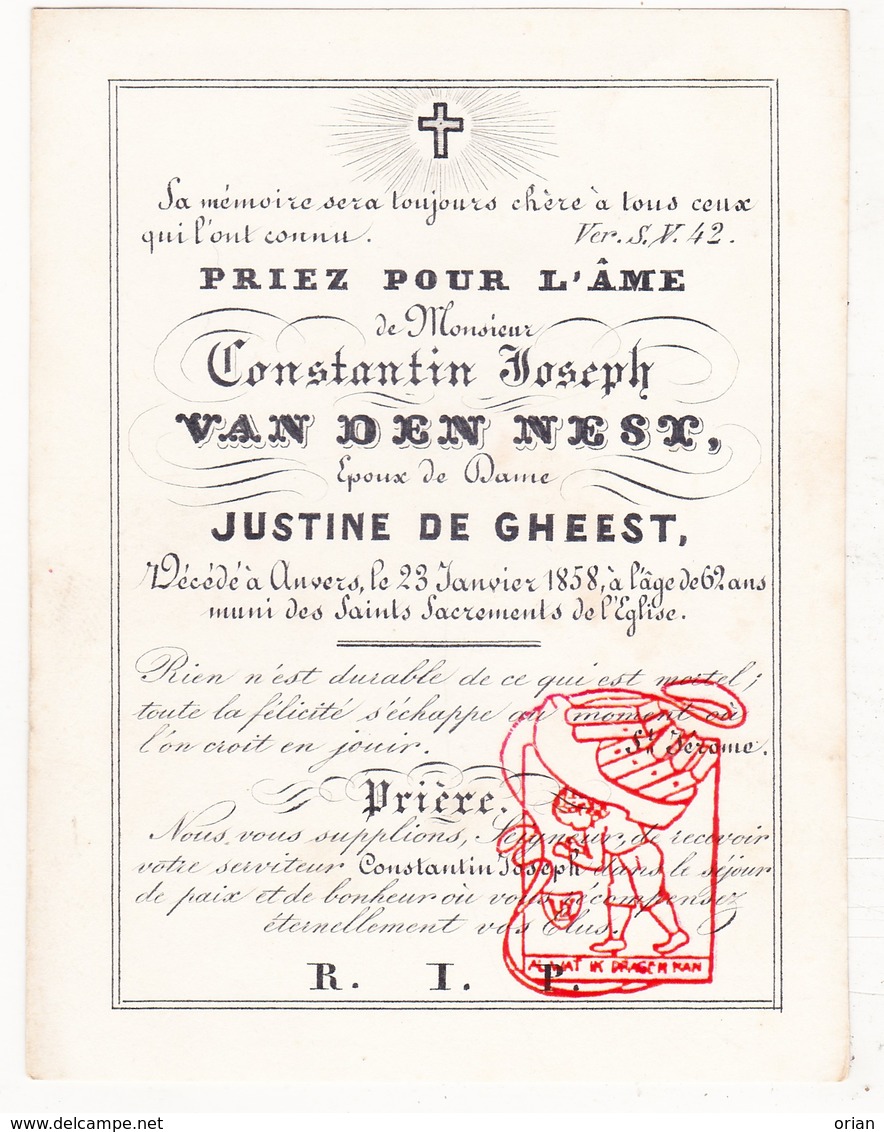 Sa mémoire sera toujours chère à tous ceux
qui l'ont connu. Ver. S. V. 42.
PRIEZ POUR L'ÂME
de Monsieur
Constantin Joseph
VAN DEN NEST,
Epoux de Dame
JUSTINE DE GHEEST,
Décédé à Anvers, le 23 Janvier 1858, à l'âge de 62 ans
muni des Saints Sacrements de l'Eglise.
Rien n'est durable de ce qui est mortel;
toute la félicité s'échappe au moment où
l'on croit en jouir. St. Jérome.
Prière.
Nous vous supplions, Seigneur, de recevoir
votre serviteur Constantin Joseph dans le séjour
de paix et de bonheur où vous récompensez
éternellement vos Elus.
AL WAT IK DRAGEN KAN
R. I. P.
delcampe.net
orian